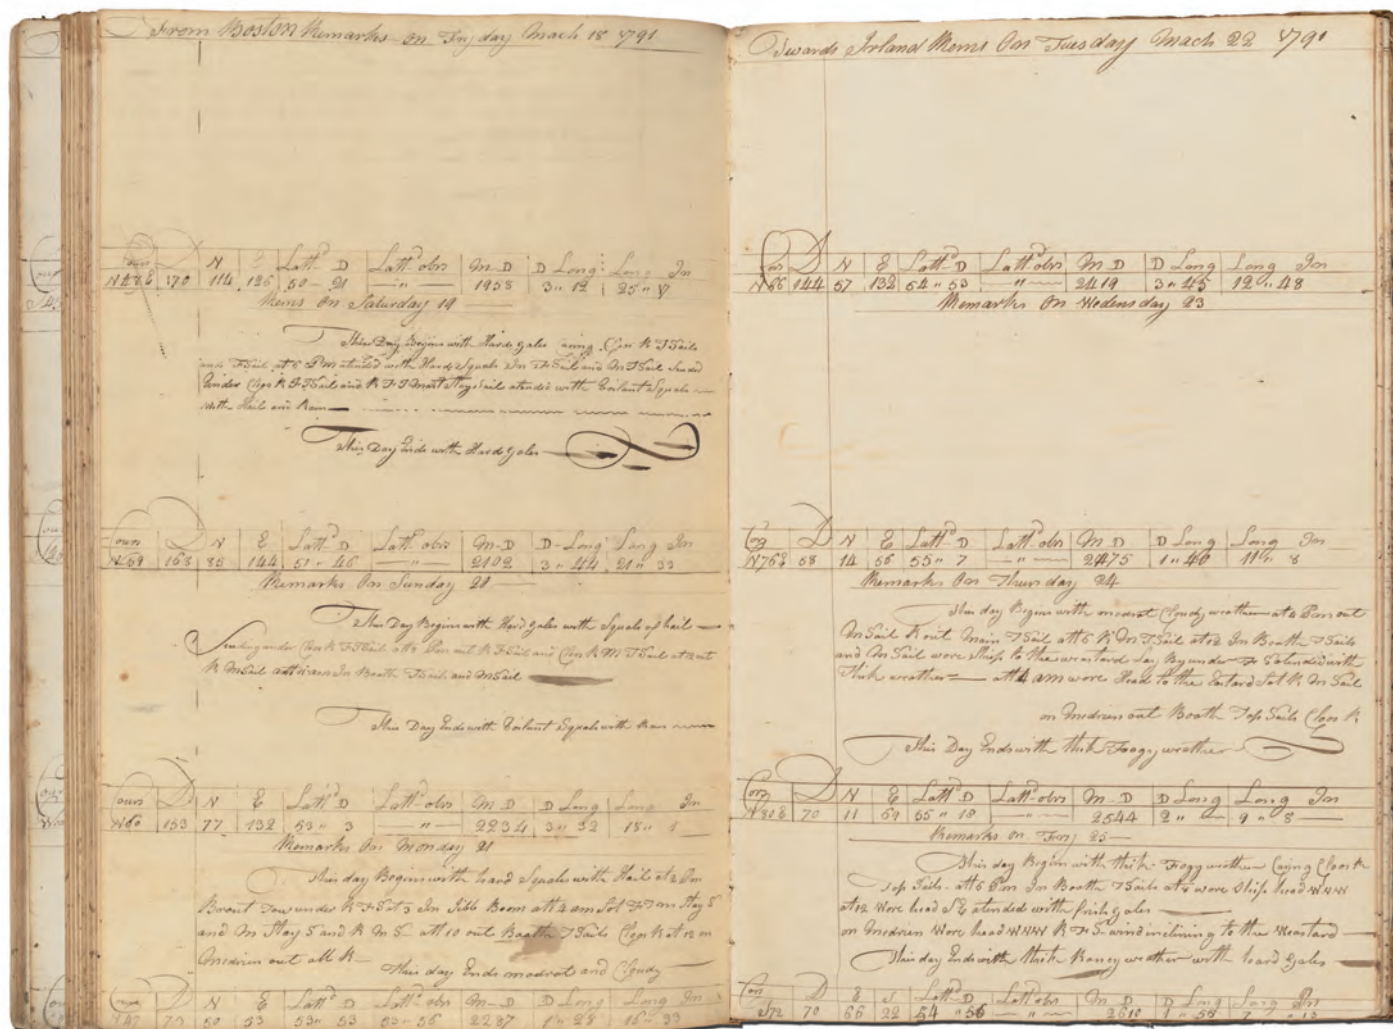 From Boston Remarks on Fryday Mach 18 1791
Cours D N E Lattd D Lattd obs M D D Long Long In
170 114 126 50 - 21 — " — 1958 3 " 12 25 "
Rems On Saturday 19
This Day Begins with Hard gales Clos R TSails
and FSail at 6 Pm atended with Hard Squals In FSail and MTSail
under Clos R FTSail and R FTMast Staysail atended with Vilant Squals
with Hail and Rain
This Day Ends with Hard gales
Cours D N E Lattd D Lattd obs M-D D-Long Long In
N59 168 85 144 51 " 46 — " — 2102 3 " 44 21 " 33
Remarks On Sunday 20
This Day Begins with Hard gales with Squals of hail
under Clos R FTSail at Pm out R FSail and Clos R MTSail at 12 out
R MSail In Booth TSails and MSail
This Day Ends with Vilant Squals with Rain
Cours D N E Lattd D Lattd obs M D D Long Long In
N60 153 77 132 53 " 3 — " — 2234 3 " 32 18 " 1
Remarks On Monday 21
This day Begins with hard Squals with Hail at 2 Pm
under R FS at 3 In Jibb Boom att 4 am Sot FTm Stay S
and M Stay S and R M S att 10 out Booth TSails Clos R at 12 on
Medrien out all R
This day Ends modrat and Cloudy
Cours D N E Lattd D Lattd obs M D D Long Long In
N47 73 50 53 53 " 53 53 " 56 2287 1 " 28 16 " 33
Towards Irland Rems On Tuesday Mach 22 1791
Cors D N E Lattd D Lattd obs M D D Long Long In
N66 144 57 132 54 " 53 — " — 2419 3 " 45 12 " 48
Remarks On Wedensday 23
Cors D N E Lattd D Lattd obs M D D Long Long In
N76E 58 14 56 55 " 7 — " — 2475 1 " 40 11 " 8
Remarks On Thursday 24
This day Begins with modrat Cloudy weather at 4 Pm out
MSail R out Main TSail att 6 R MTSail at 12 In Booth TSails
and MSail wore Ship to the westard Lay By under F S atended with
Thik weather att 4 am wore Head to the Eastard Sot R MSail
on Medrien out Booth Top Sails Clos R
This Day Ends with thik Foogy weather
Cors D N E Lattd D Lattd obs M D D Long Long In
N80E 70 11 69 55 " 18 — " — 2544 2 " — 9 " 8
Remarks on Fry 25
This day Begins with thik Fogy weather Caring Clos R
Top Sails att 6 Pm In Booth TSails at wore Ship head WNW
at 12 Wore head SE atended with frish gales
on Medrien Wore head WNW R F S wind inclining to the Weastard
This day Ends with thik Raney weather with hard gales
Cors D E S Lattd D Lattd obs M D D Long Long In
S72 70 66 22 54 " 56 — " — 2610 1 " 56 7 " 12